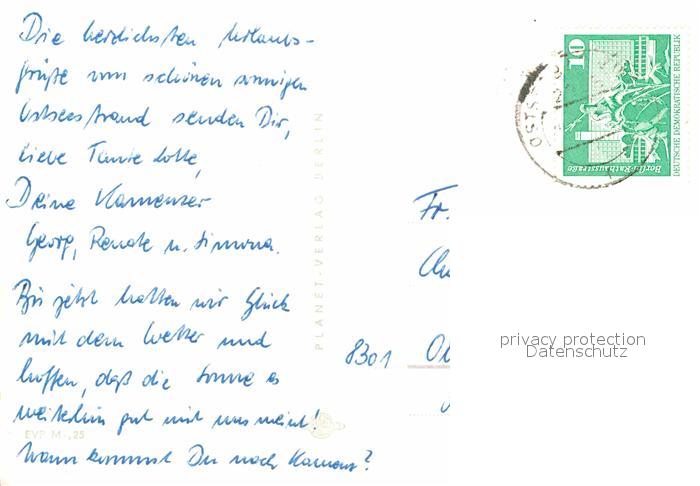 Die herzlichsten Urlaubs-
grüße vom schönen sonnigen
Ostseestrand senden Dir,
liebe Tante Lotte,
Deine Kamenzer
Georg, Renate u. Simona.
Bis jetzt hatten wir Glück
mit dem Wetter und
hoffen, daß die Sonne es
weiterhin gut mit uns meint!
Wann kommst Du nach Kamenz?
EVP M -,25
PLANET-VERLAG BERLIN
10
Berlin-Rathausstraße
DEUTSCHE DEMOKRATISCHE REPUBLIK
Fr.
8301
privacy protection
Datenschutz